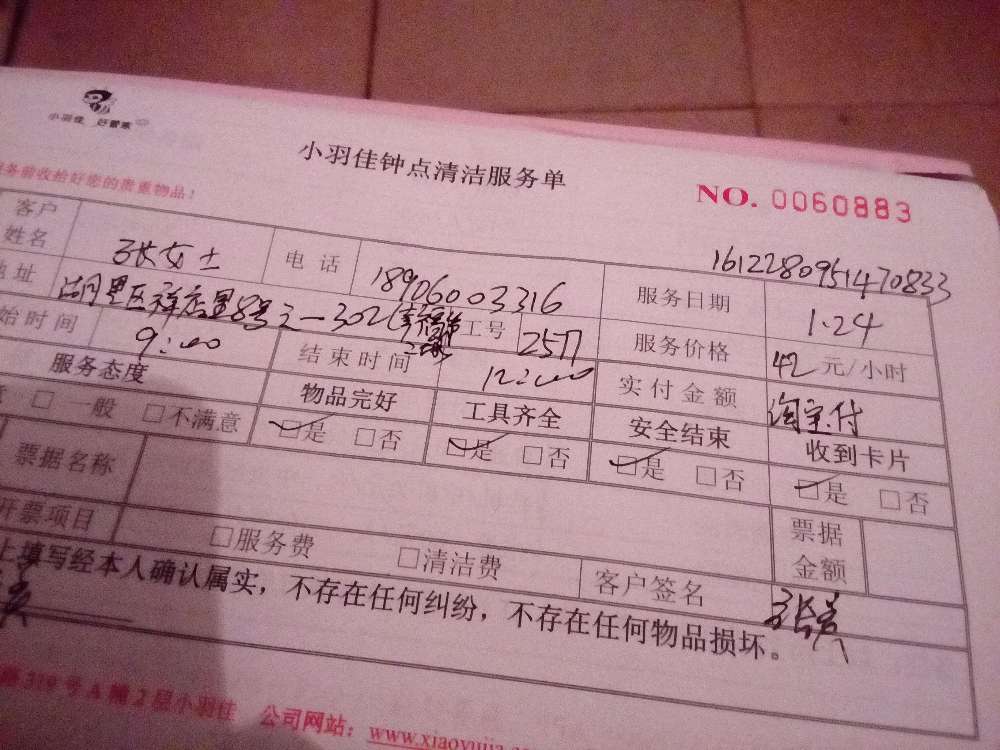 小羽佳 好管家
小羽佳钟点清洁服务单
服务前收拾好您的贵重物品!
NO. 0060883
1612280951470833
客户姓名 张女士 电话 18906003316 服务日期 1.24
地址 湖里区祥店里8号之一302 工号 2577 服务价格 42元/小时
始时间 9:00 结束时间 12:00 实付金额 淘宝付
服务态度 物品完好 工具齐全 安全结束 收到卡片
□一般 □不满意 □是 □否 □是 □否 □是 □否 □是 □否
票据名称 票据金额
开票项目 □服务费 □清洁费 客户签名
上填写经本人确认属实,不存在任何纠纷,不存在任何物品损坏。
路319号A幢2层小羽佳 公司网站:www.xiaoyujia